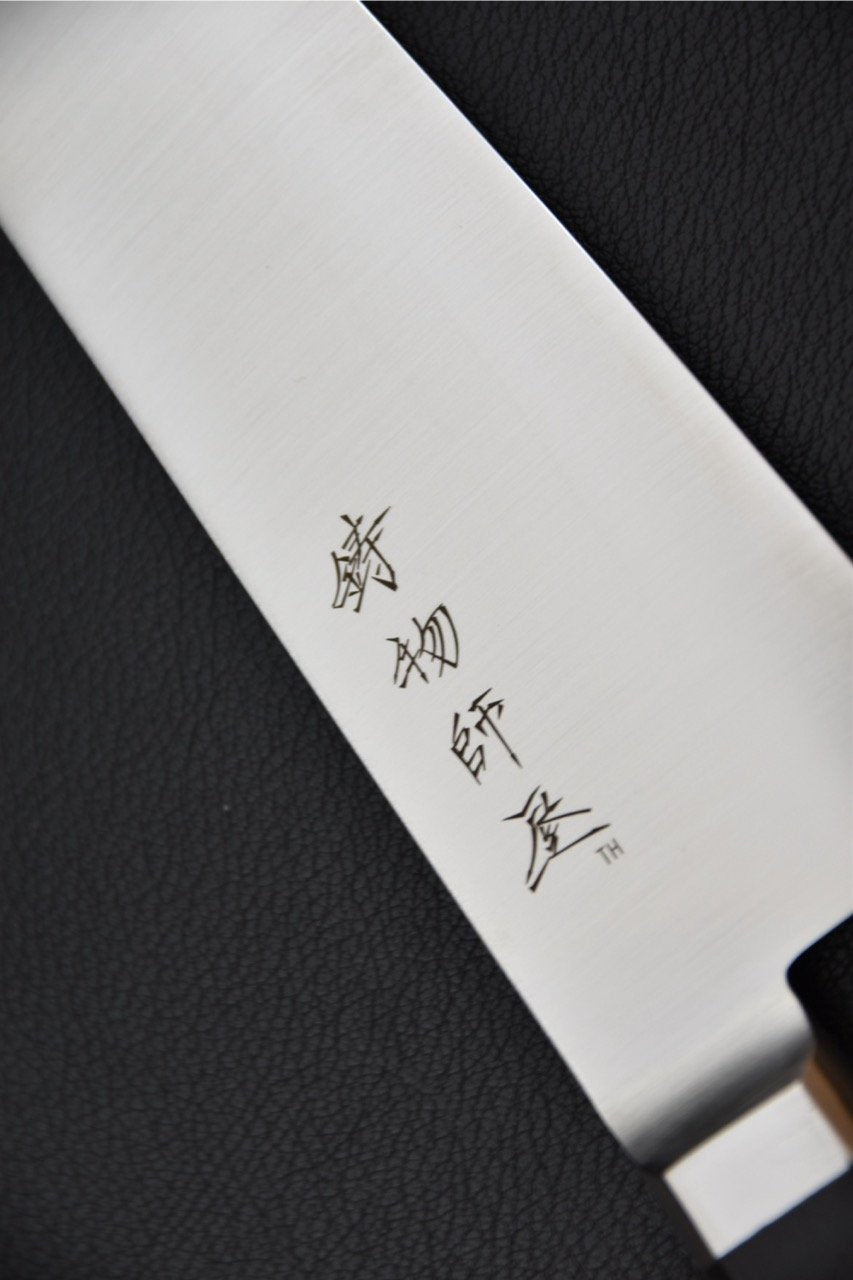 鋳物師屋
TH